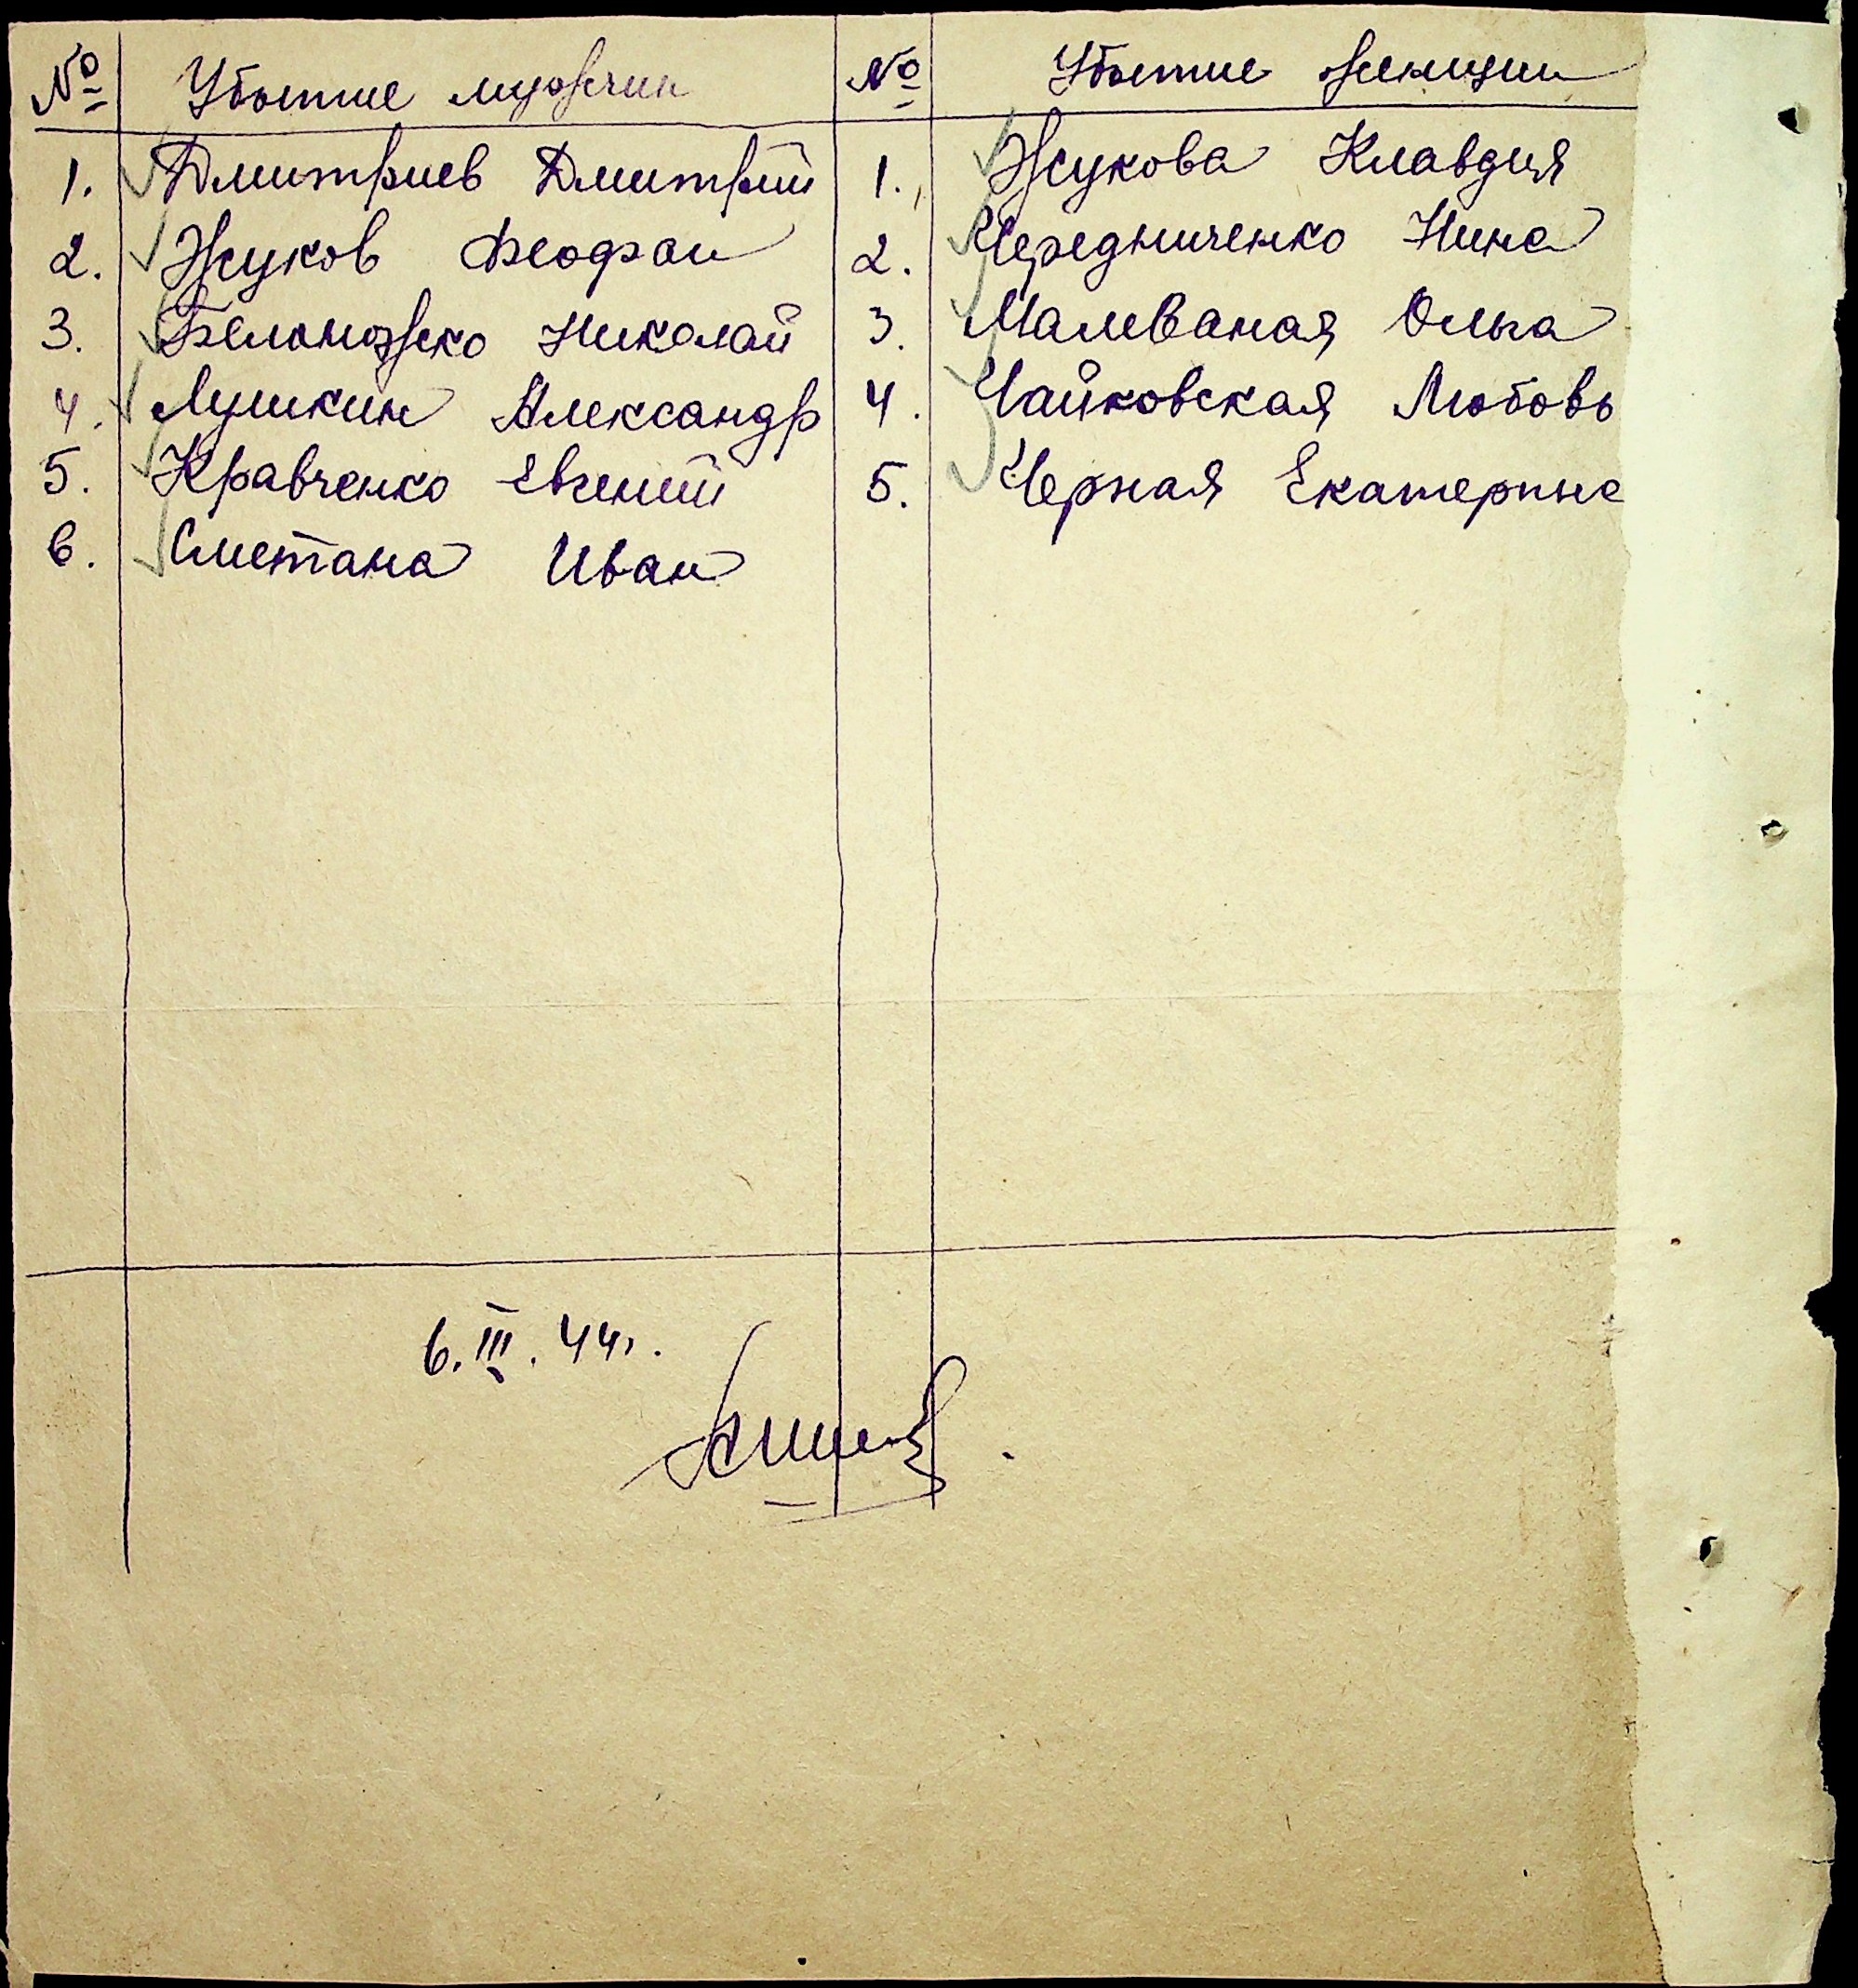 № Убытие мужчин № Убытие женщин
1. Дмитриев Дмитрий 1. Жукова Клавдия
2. Жуков Феофан 2. Чередниченко Нина
3. Беломожко Николай 3. Малеваная Ольга
4. Лушкин Александр 4. Чайковская Любовь
5. Кравченко Евгений 5. Черная Екатерина
6. Сметана Иван
6.III.44г.